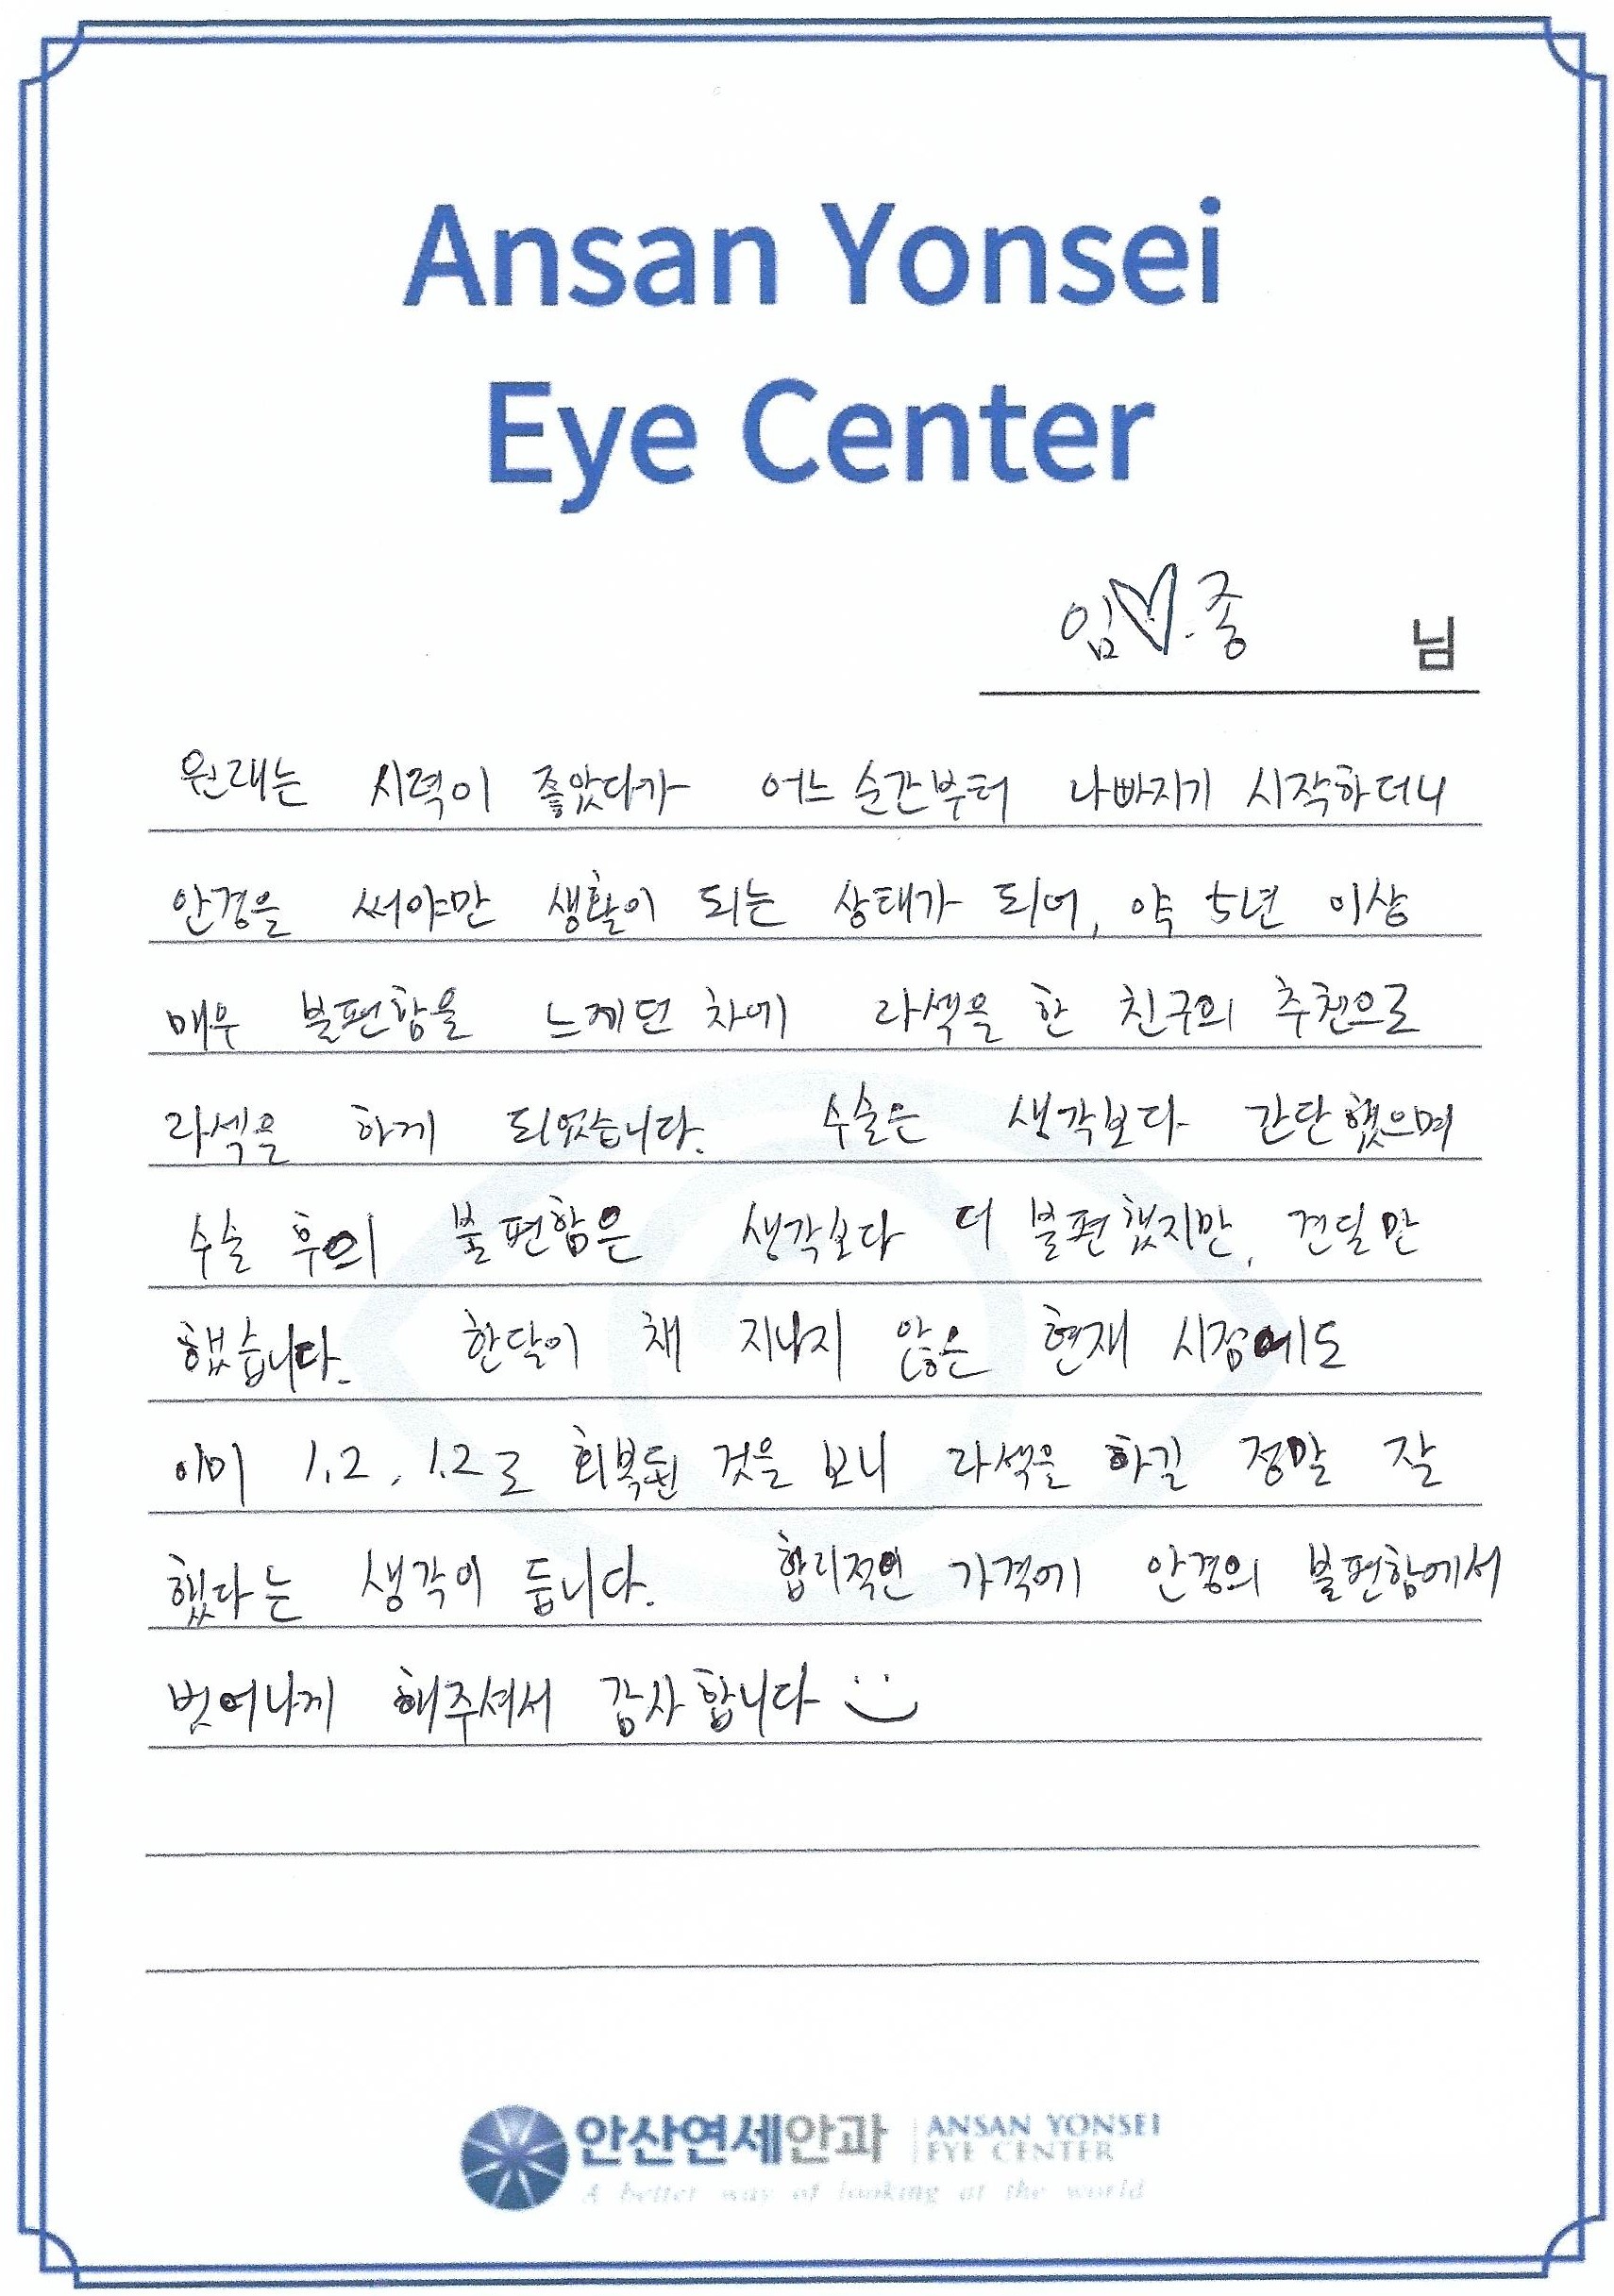 Ansan Yonsei
Eye Center
임♡.종 님
원래는 시력이 좋았다가 어느 순간부터 나빠지기 시작하더니
안경을 써야만 생활이 되는 상태가 되어, 약 5년 이상
매우 불편함을 느께던 차에 라섹을 한 친구의 추천으로
라섹을 하게 되었습니다. 수술은 생각보다 간단했으며
수술 후의 불편함은 생각보다 더 불편했지만, 견딜만
했습니다. 한달이 채 지나지 않은 현재 시점에도
이미 1.2, 1.2로 회복된 것을 보니 라섹을 하길 정말 잘
했다는 생각이 듭니다. 합리적인 가격에 안경의 불편함에서
벗어나게 해주셔서 감사합니다
안산연세안과 ANSAN YONSEI
EYE CENTER
A better way of looking at the world